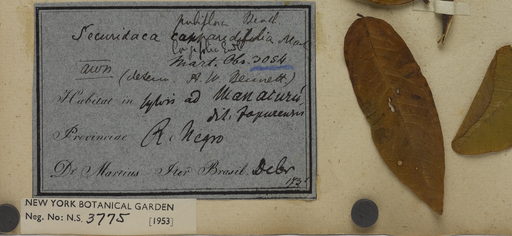 pubiflora Benth
Securidaca
Mart. Obs. 3054
(determ. A. W. Bennett)
Habitat in sylvis ad Manaturú
Provinciae R. Negro
Dr Martius Iter Brasil. Debr
NEW YORK BOTANICAL GARDEN
Neg. No: N.S. 3775 [1953]